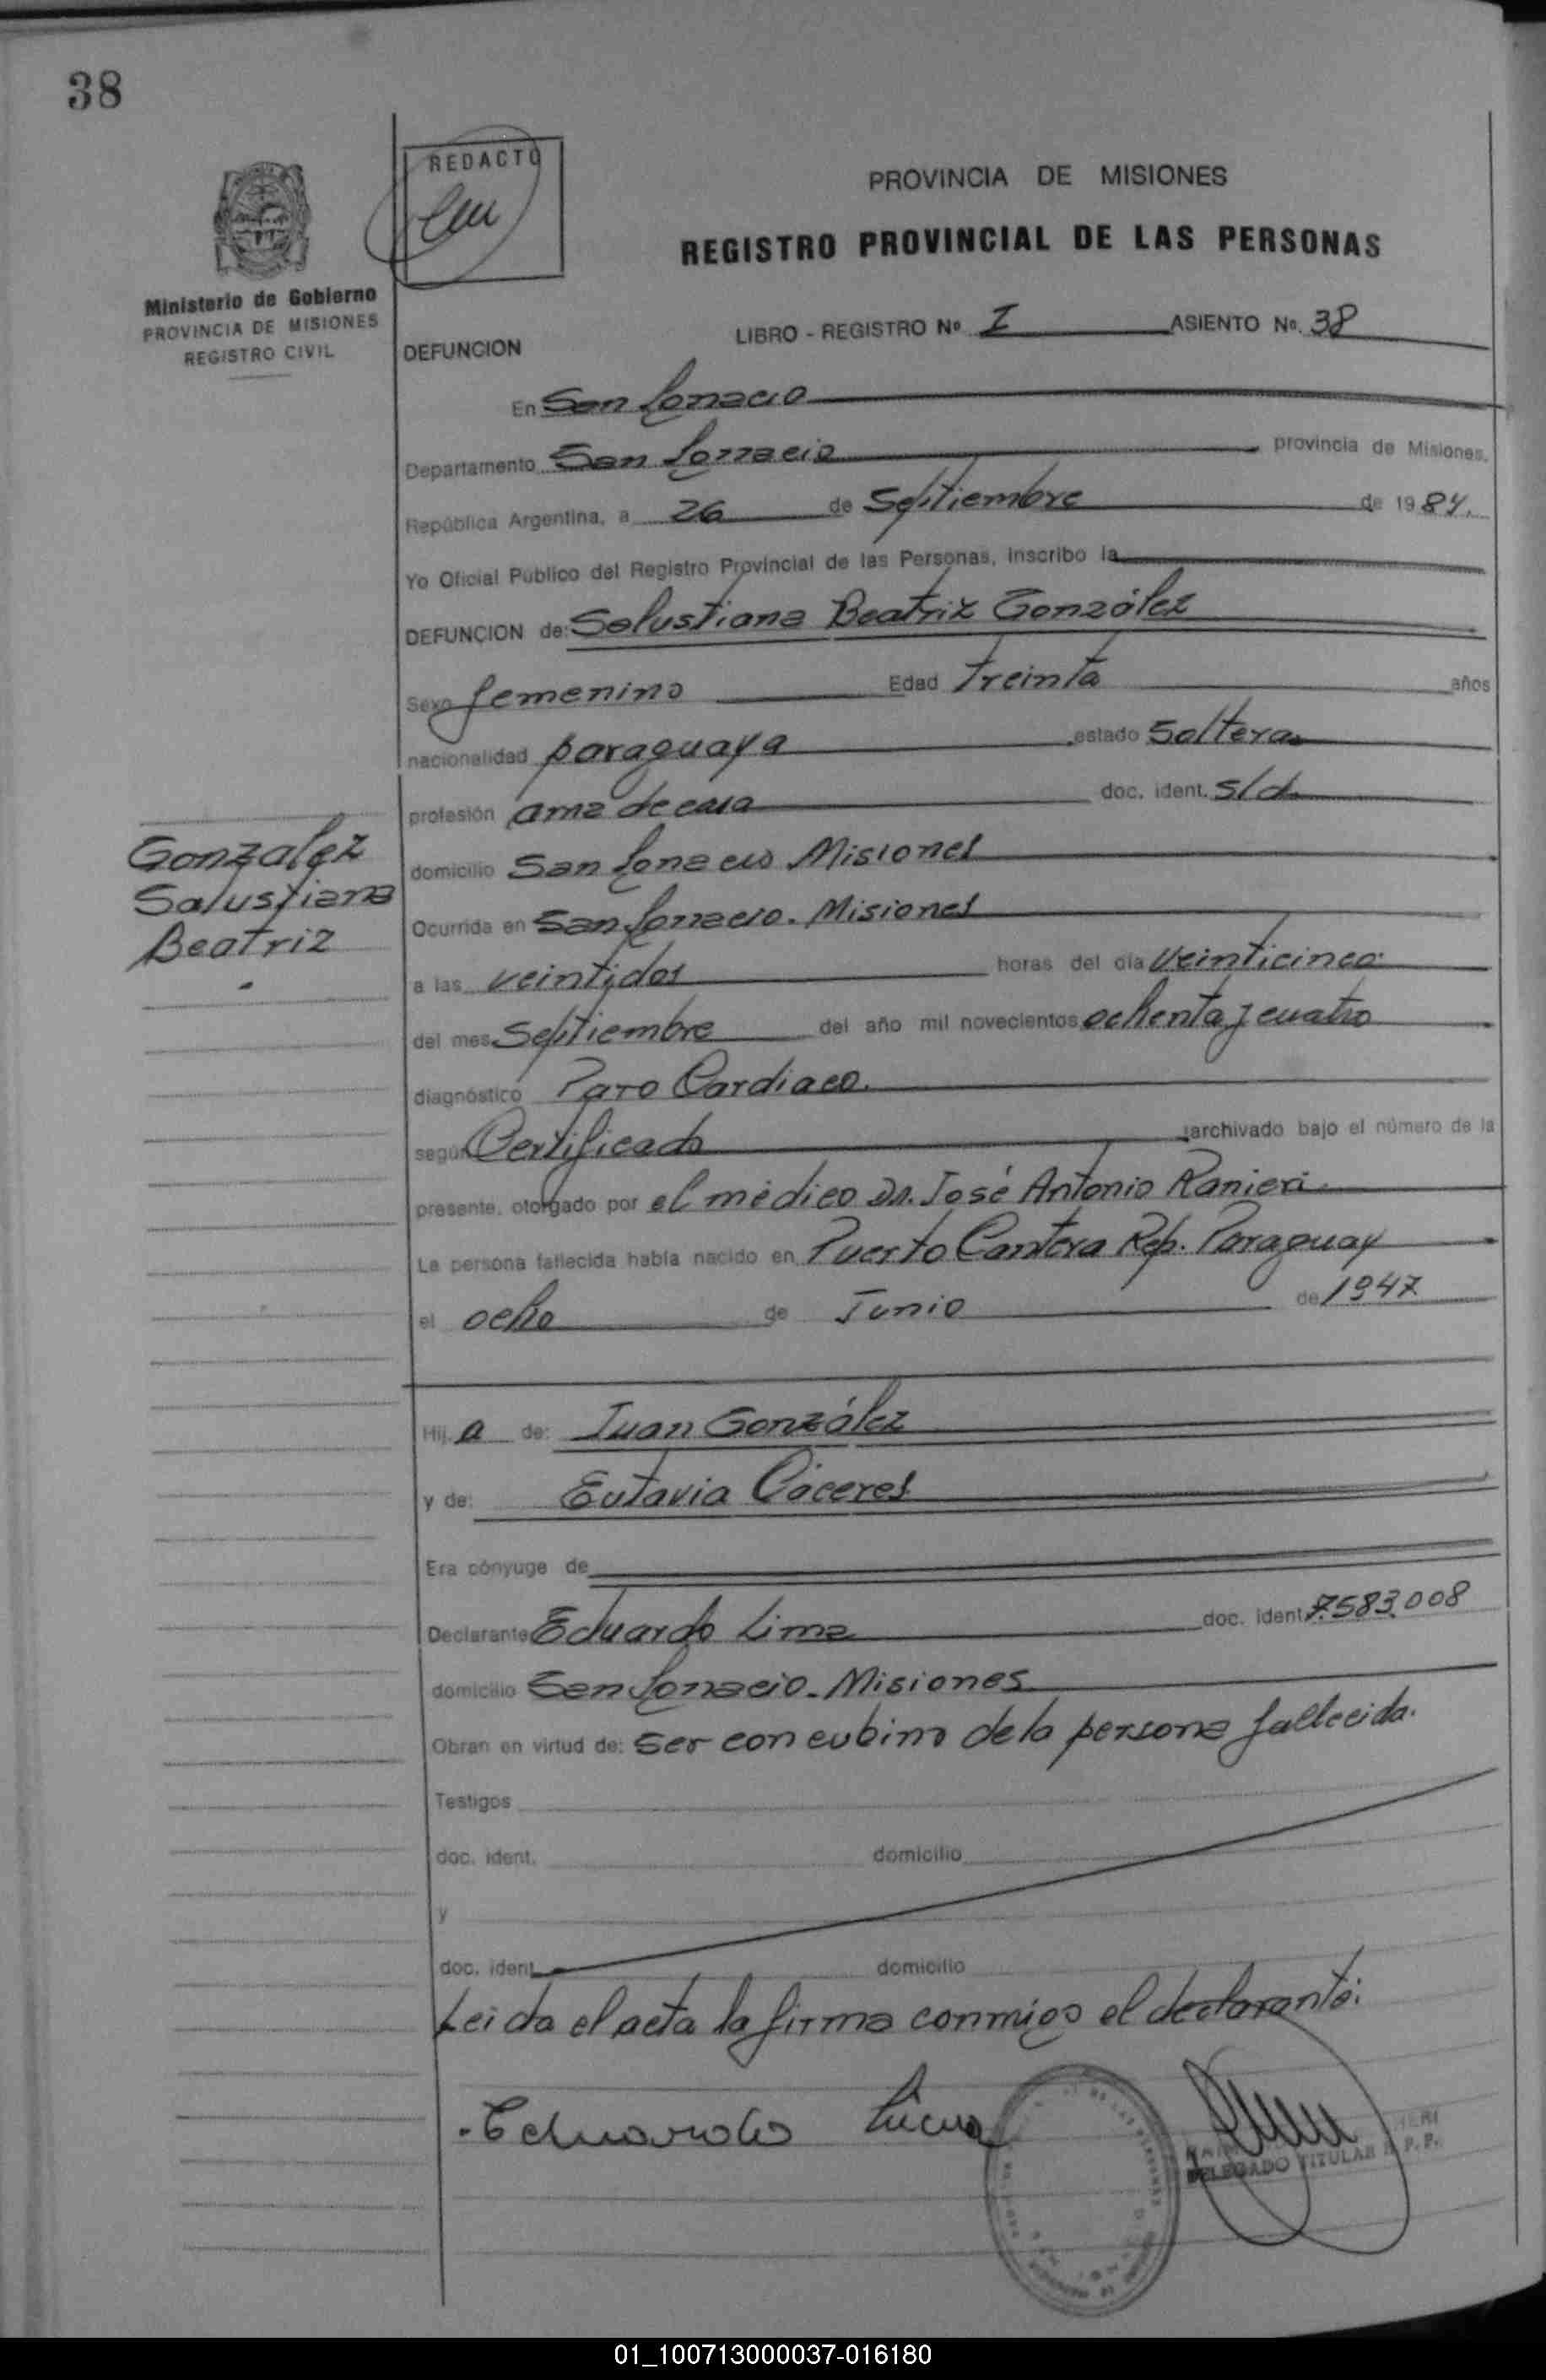 38
REDACTO
PROVINCIA DE MISIONES
REGISTRO PROVINCIAL DE LAS PERSONAS
Ministerio de Gobierno
PROVINCIA DE MISIONES
REGISTRO CIVIL
LIBRO - REGISTRO Nº I ASIENTO Nº. 38
DEFUNCION
En San Ignacio
Departamento San Ignacio provincia de Misiones,
República Argentina, a 26 de Septiembre de 1984.
Yo Oficial Público del Registro Provincial de las Personas, inscribo la
DEFUNCION de: Salustiana Beatriz González
Sexo femenino Edad treinta años
nacionalidad paraguaya estado Soltera
profesión ama de casa doc. ident. s/d
Gonzalez
Salustiana
Beatriz
domicilio San Ignacio Misiones
Ocurrida en San Ignacio. Misiones
a las veintidos horas del día veinticinco
del mes Septiembre del año mil novecientos ochenta y cuatro
diagnóstico Paro Cardiaco.
según Certificado archivado bajo el número de la
presente, otorgado por el médico Dr. José Antonio Ranieri
La persona fallecida había nacido en Puerto Cantera Rep. Paraguay
el ocho de Junio de 1947
Hij a de: Juan González
y de: Eutavia Cáceres
Era cónyuge de
Declarante Eduardo Lima doc. ident. 7.583.008
domicilio San Ignacio - Misiones
Obran en virtud de: ser concubino de la persona fallecida.
Testigos
doc. ident. domicilio
y
doc. ident. domicilio
Leida el acta la firma conmigo el declarante:
Eduardo
DELEGADO TITULAR R. P. P.
01_100713000037-016180